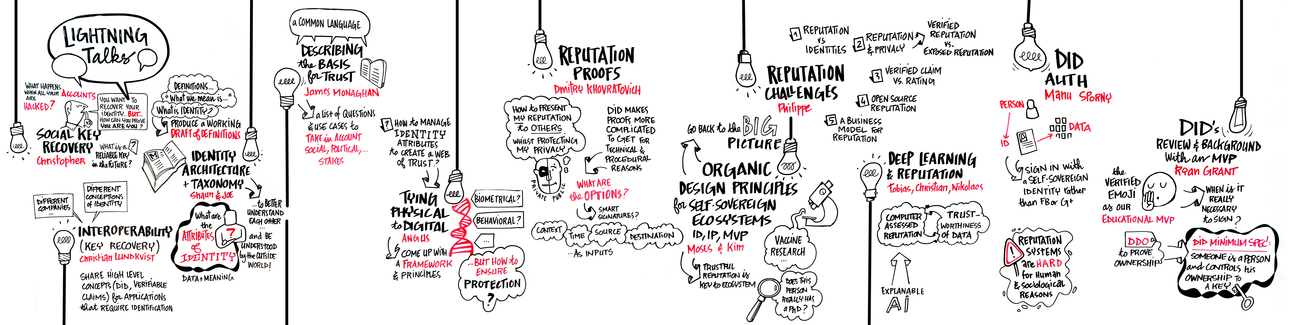 LIGHTNING
Talks
WHAT HAPPENS
WHEN ALL YOUR
ACCOUNTS
ARE
HACKED?
YOU WANT TO
RECOVER YOUR
IDENTITY. BUT...
HOW CAN YOU PROVE
YOU ARE YOU?
SOCIAL KEY
RECOVERY
Christopher
WHAT IS A
RELIABLE KEY
in the FUTURE?
DEFINITIONS...
What we mean is...
What is IDENTITY?
PRODUCE A WORKING
DRAFT of DEFINITIONS
IDENTITY
ARCHITECTURE
+ TAXONOMY
Shaun & Joe
...to BETTER
UNDERSTAND
EACH OTHER
...and BE
UNDERSTOOD
by the OUTSIDE
WORLD!
What are
the
ATTRIBUTES
of
IDENTITY
?
DATA + MEANING
DIFFERENT
COMPANIES...
DIFFERENT
CONCEPTIONS
of IDENTITY
INTEROPERABILITY
(KEY RECOVERY)
Christian LUNDKVIST
SHARE HIGH LEVEL
CONCEPTS (DID, VERIFIABLE
CLAIMS) for APPLICATIONS
that REQUIRE IDENTIFICATION
a COMMON LANGUAGE
DESCRIBING
the BASIS
for TRUST
James MONAGHAN
a LIST of QUESTIONS
& USE CASES to
TAKE in ACCOUNT
SOCIAL, POLITICAL, ...
STAKES
? HOW to MANAGE
IDENTITY
ATTRIBUTES
to CREATE a WEB
of TRUST?
TYING
PHYSICAL
to DIGITAL
ANGUS
COME UP WITH
A FRAMEWORK
& PRINCIPLES
BIOMETRICAL?
BEHAVIORAL?
...
...BUT HOW to
ENSURE
PROTECTION
?
REPUTATION
PROOFS
Dmitry KHOVRATOVICH
HOW to PRESENT
MY REPUTATION
to OTHERS
WHILST PROTECTING
MY PRIVACY?
PRIVATE PUBLIC
DID MAKES
PROOF MORE
COMPLICATED
to GET for
TECHNICAL &
PROCEDURAL
REASONS
WHAT ARE
the OPTIONS?
SMART
SIGNATURES?
CONTEXT
TIME
SOURCE
DESTINATION
...AS INPUTS
REPUTATION
CHALLENGES
Philippe
1 REPUTATION
vs
IDENTITIES
2 REPUTATION
& PRIVACY
VERIFIED
REPUTATION
vs.
EXPOSED REPUTATION
3 VERIFIED CLAIM
vs. RATING
4 OPEN SOURCE
REPUTATION
5 A BUSINESS
MODEL for
REPUTATION
GO BACK to the BIG
PICTURE
ORGANIC
DESIGN PRINCIPLES
for SELF-SOVEREIGN
ECOSYSTEMS
ID, IP, MVP
Moses & Kim
TRUSTFUL
REPUTATION is
KEY to ECOSYSTEM
VACCINE
RESEARCH
DOES THIS
PERSON
REALLY HAS
a PhD?
DEEP LEARNING
& REPUTATION
Tobias, Christian, Nikolaos
COMPUTER
ASSESSED
REPUTATION
TRUST-
WORTHINESS
OF DATA
EXPLAINABLE
AI
DID
AUTH
Manu SPORNY
PERSON
ID
DATA
SIGN IN with
a SELF-SOVEREIGN
IDENTITY rather
than FB or G+
REPUTATION
SYSTEMS
are HARD
for Human
& sociological
REASONS
DID's
REVIEW & BACKGROUND
With an MVP
Ryan GRANT
the
VERIFIED
EMOJI
as OUR
EDUCATIONAL MVP
WHEN is it
REALLY
NECESSARY
to SIGN?
DDO
to PROVE
OWNERSHIP
DID MINIMUM SPEC:
SOMEONE is a PERSON
and CONTROLS his
OWNERSHIP to
A KEY